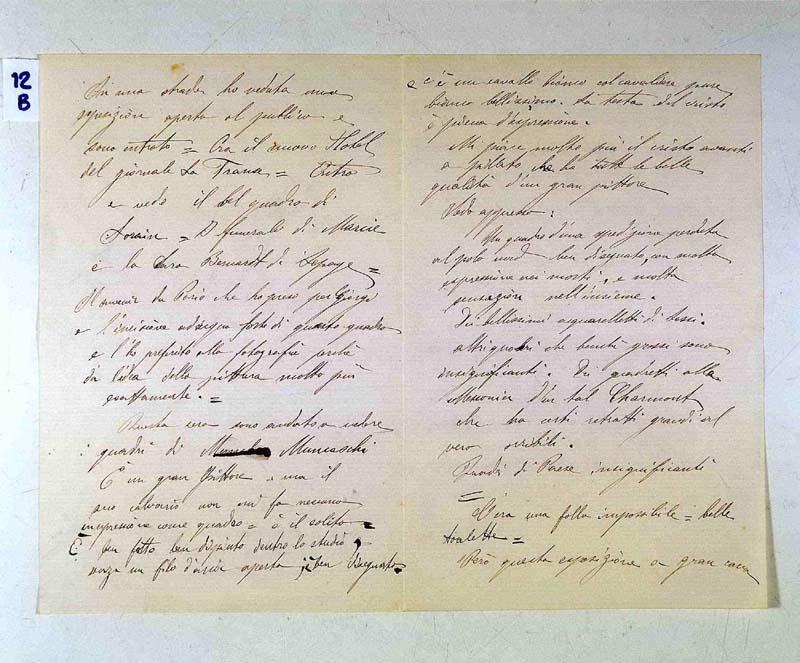 12
B
In una strada ho veduta una
esposizione aperta al publico e
sono intrato = Era il nuovo Hotel
del giornale La France = Entro
e vedo il bel quadro di
= Il funerale di Marcie
è la Sara Bernardt di Lepage =
Il souvenir du Paris che ho preso per Giorgi
e l'incisione ad acqua forte di questo quadro
e l'ho preferito alla fotografia perchè
dà l'idea della pittura molto più
esattamente. =
Questa sera sono andato a vedere
i quadri di Muncaschi
È un gran Pittore, ma il
suo calvario non mi fa nessuna
impressione come quadro = è il solito =
È ben fatto ben dipinto dentro lo studio,
senza un filo d'aria aperta, è ben disegnato
e c'è un cavallo bianco col cavaliere pure
bianco bellissimo. La testa del cristo
è piena d'espressione.
Mi piace molto più il cristo avanti
a Pillato che ha tutte le belle
qualità d'un gran pittore
Vedo appresso:
Un quadro d'una spedizione perduta
al polo nord ben disegnato, con molta
espressione nei, e molta
sensazione nell'insieme.
Dei bellissimi acquarelletti di
altri quadri che benchè grossi sono
insignificanti. Dei quadretti alla
Messonier d'un tal Charmont
che ha certi retratti grandi al
vero orribili.
Quadri di Paese insignificanti
=
C'era una folla impossibile = belle
toalette =
Però questa esposizione a gran